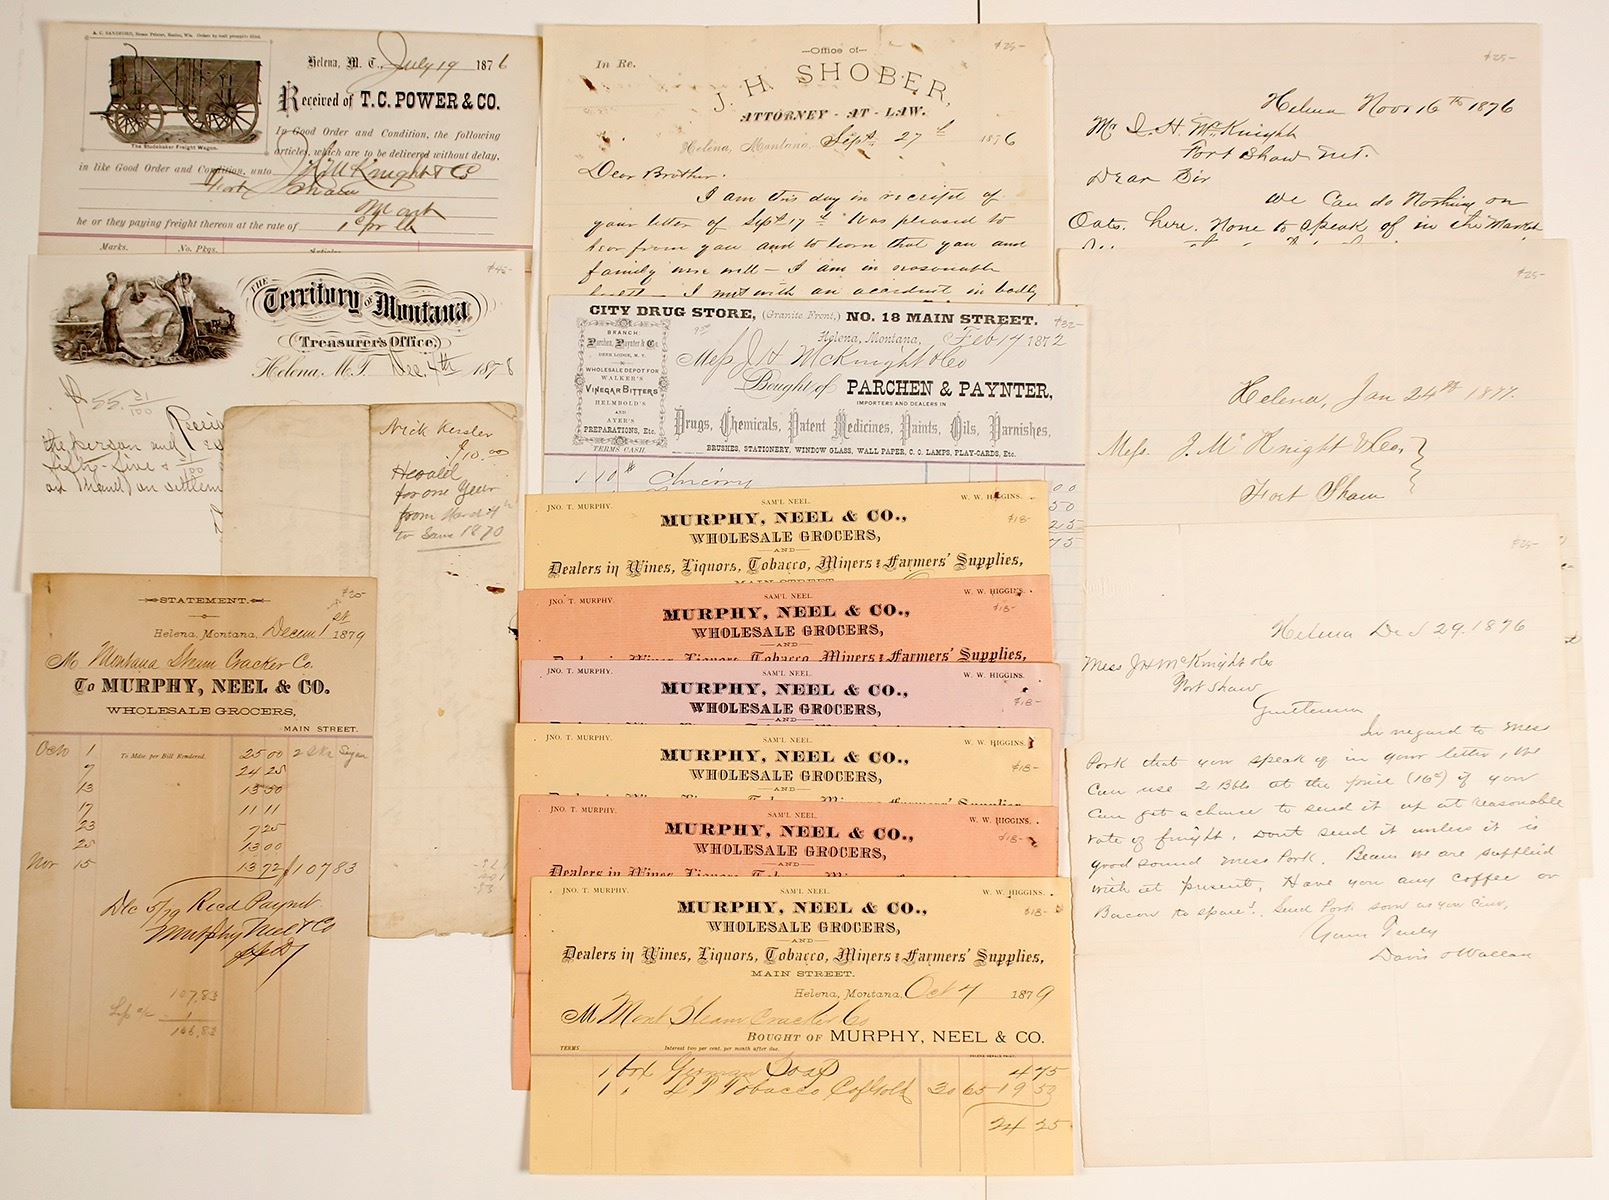 A. C. SANDFORD, Steam Printer, Racine, Wis. Orders by mail promptly filled.
The Studebaker Freight Wagon.
Helena, M. T., July 19 1876
Received of T. C. POWER & CO.
In Good Order and Condition, the following
articles, which are to be delivered without delay,
in like Good Order and Condition, unto J H McKnight & Co
Fort Shaw
he or they paying freight thereon at the rate of 1 pr lb
Marks. No. Pkgs. Articles
$45-
THE Territory of Montana
(Treasurer's Office,)
Helena, M.T. Dec. 4th 1878
$55. 51/100
Receiv
the person and
fifty-five & 51/100
on settlem
Nick Kesler
$10.00
Herald
for one Year
from March 4th
to Jan. 1870
$20-
STATEMENT.
Helena, Montana, Decem 1st 1879
M Montana Steam Cracker Co.
To MURPHY, NEEL & CO.
WHOLESALE GROCERS,
MAIN STREET.
Octo 1 To Mdse per Bill Rendered. 25 00 2 Sks Sugar
7 24 25
13 13 50
17 11 11
23 7 25
25 13 00
Nov 15 13 72 $107 83
Dec 5/79 Recd Paymt.
Murphy Neel & Co
107.83
1
106.83
$25-
In Re.
—Office of—
J. H. SHOBER,
ATTORNEY - AT - LAW.
Helena, Montana, Sept. 27th 1876
Dear Brother.
I am this day in receipt of
your letter of Sept 17th Was pleased to
hear from you and to learn that you and
family were well — I am in reasonable
health — I met with an accident in badly
CITY DRUG STORE, (Granite Front,) NO. 18 MAIN STREET. $32-
BRANCH:
Parchen, Paynter & Co.
DEER LODGE, M. T.
WHOLESALE DEPOT FOR
WALKER'S
VINEGAR BITTERS
HELMBOLD'S
AND
AYER'S
PREPARATIONS, Etc.
Helena, Montana, Feb 14 1872
Mess J. H McKnight & Co
Bought of PARCHEN & PAYNTER,
IMPORTERS AND DEALERS IN
Drugs, Chemicals, Patent Medicines, Paints, Oils, Varnishes,
TERMS CASH BRUSHES, STATIONERY, WINDOW GLASS, WALL PAPER, C. O. LAMPS, PLAY-CARDS, Etc.
00
50
25
75
JNO. T. MURPHY. SAM'L NEEL. W. W. HIGGINS.
$18-
MURPHY, NEEL & CO.,
WHOLESALE GROCERS,
AND
Dealers in Wines, Liquors, Tobacco, Miners & Farmers' Supplies,
MAIN STREET.
JNO. T. MURPHY. SAM'L NEEL. W. W. HIGGINS.
$18-
MURPHY, NEEL & CO.,
WHOLESALE GROCERS,
AND
Dealers in Wines, Liquors, Tobacco, Miners & Farmers' Supplies,
JNO. T. MURPHY. SAM'L NEEL. W. W. HIGGINS.
$18-
MURPHY, NEEL & CO.,
WHOLESALE GROCERS,
AND
JNO. T. MURPHY. SAM'L NEEL. W. W. HIGGINS.
$18-
MURPHY, NEEL & CO.,
WHOLESALE GROCERS,
AND
JNO. T. MURPHY. SAM'L NEEL. W. W. HIGGINS.
$18-
MURPHY, NEEL & CO.,
WHOLESALE GROCERS,
AND
Dealers in Wines, Liquors, Tobacco, Miners & Farmers' Supplies,
JNO. T. MURPHY. SAM'L NEEL. W. W. HIGGINS.
$18-
MURPHY, NEEL & CO.,
WHOLESALE GROCERS,
AND
Dealers in Wines, Liquors, Tobacco, Miners & Farmers' Supplies,
MAIN STREET.
Helena, Montana, Oct 7 1879
M Mont Steam Cracker Co
BOUGHT OF MURPHY, NEEL & CO.
TERMS Interest two per cent. per month after due.
1 box German Soap 4 75
1 " Tobacco 30 65 19 50
24 25
$25-
Helena Nov 16th 1876
Mr J. H. McKnight
Fort Shaw M.T.
Dear Sir
We Can do Nothing on
Oats. here. None to speak of in the Market
$25-
Helena, Jan 24th 1877.
Mess. J. McKnight & Co,
Fort Shaw
$25-
Helena Dec 29. 1876
Mess J H McKnight & Co
Fort Shaw
Gentlemen
In regard to Mess
Pork that you speak of in your letter, We
Can use 2 Bbls at the price (16c) if you
Can get a chance to send it up at reasonable
rate of freight. Dont send it unless it is
good sound Mess Pork. Beans we are supplied
with at present. Have you any Coffee or
Bacon to spare? Send Pork soon as you Can,
Yours Truly
Davis & Wallace